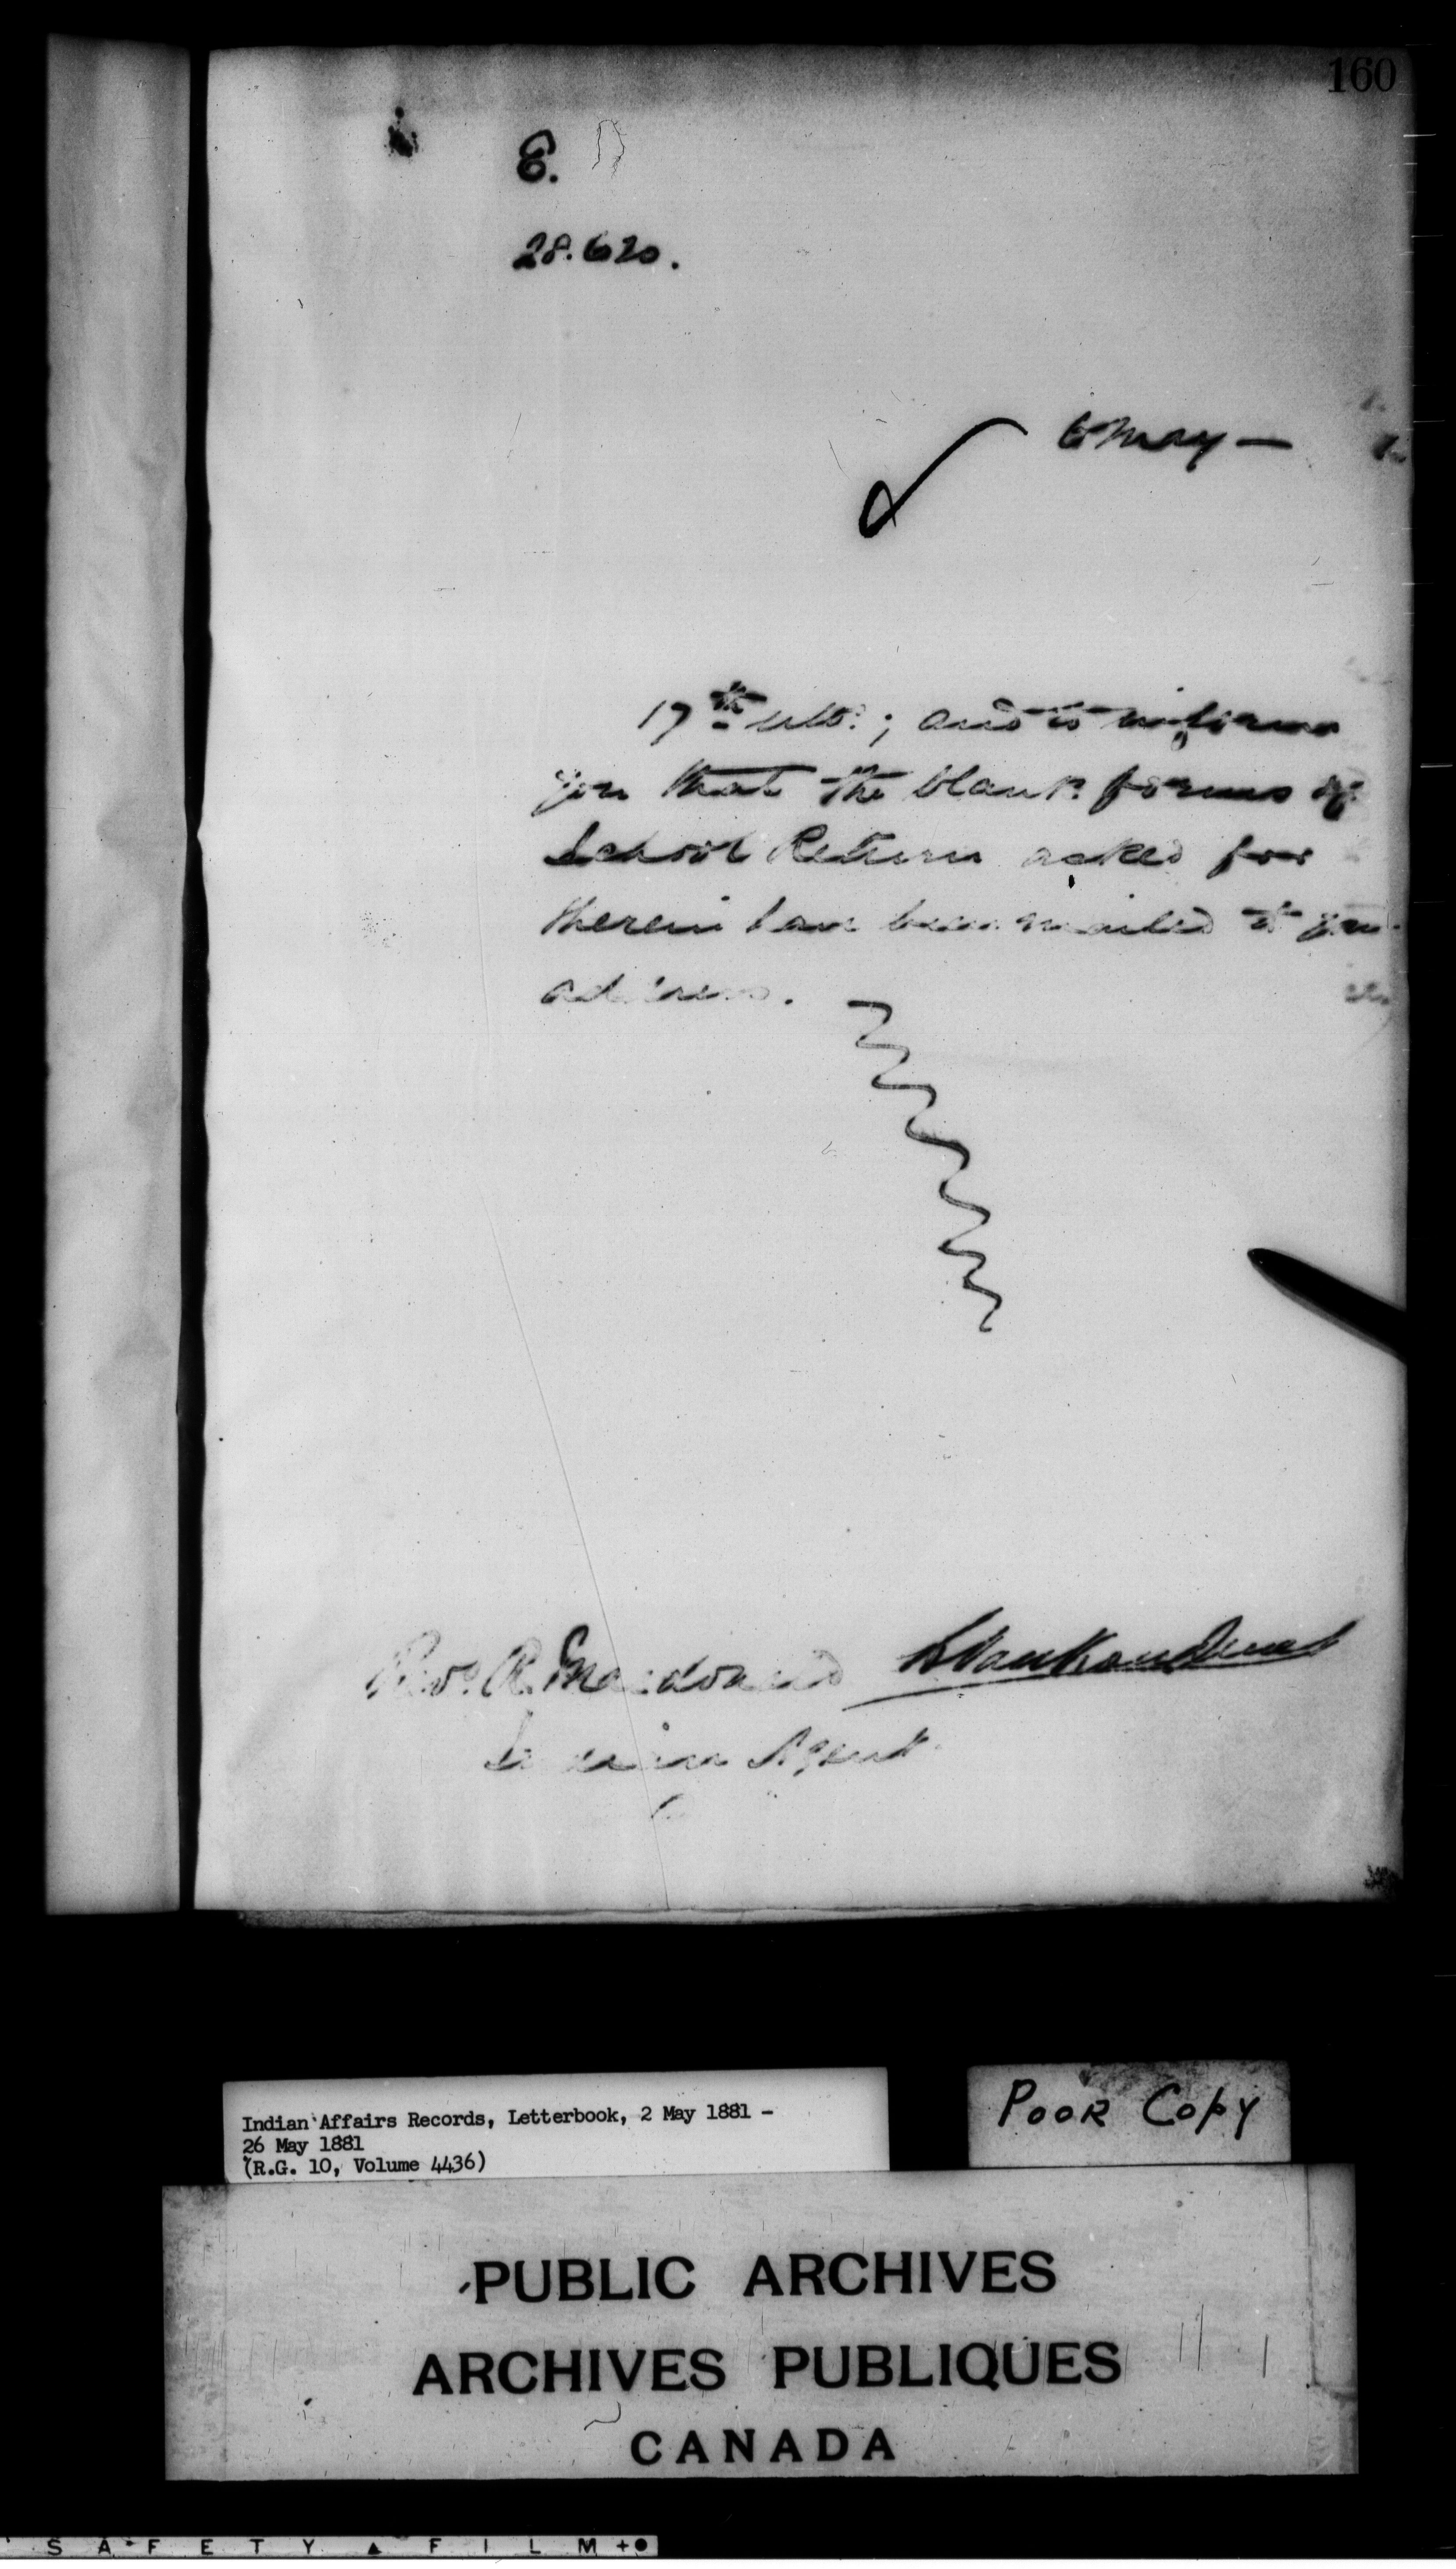 160
E.
28.620.
6 May —
17th ulto.; and to inform
you that the blank forms of
School Return asked for
therein have been mailed to your
address.
Rev. R. Macdonald L Vankoughnet
Indian Agent
Indian Affairs Records, Letterbook, 2 May 1881 -
26 May 1881
(R.G. 10, Volume 4436)
POOR COPY
PUBLIC ARCHIVES
ARCHIVES PUBLIQUES
CANADA
SAFETY ▲ FILM